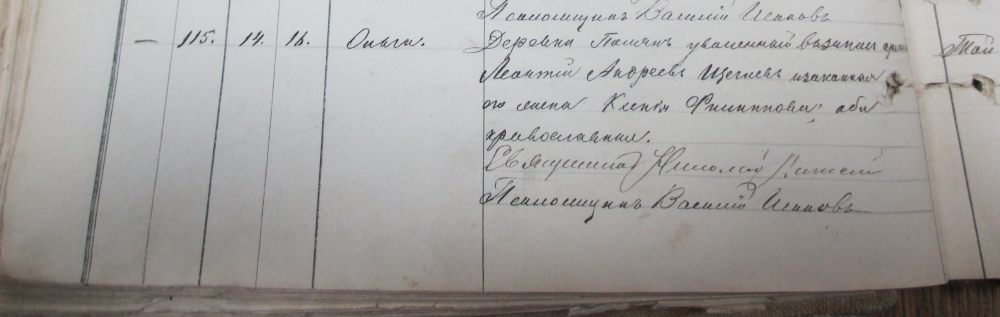 Псаломщикъ Василій Исаковъ
— 115. 14. 16. Ольга. Деревни уволенный въ запасъ Той
Леонтій Андреевъ и законная
его жена Ксенія Филиппова, оба
православные.
Священникъ Николай
Псаломщикъ Василій Исаковъ